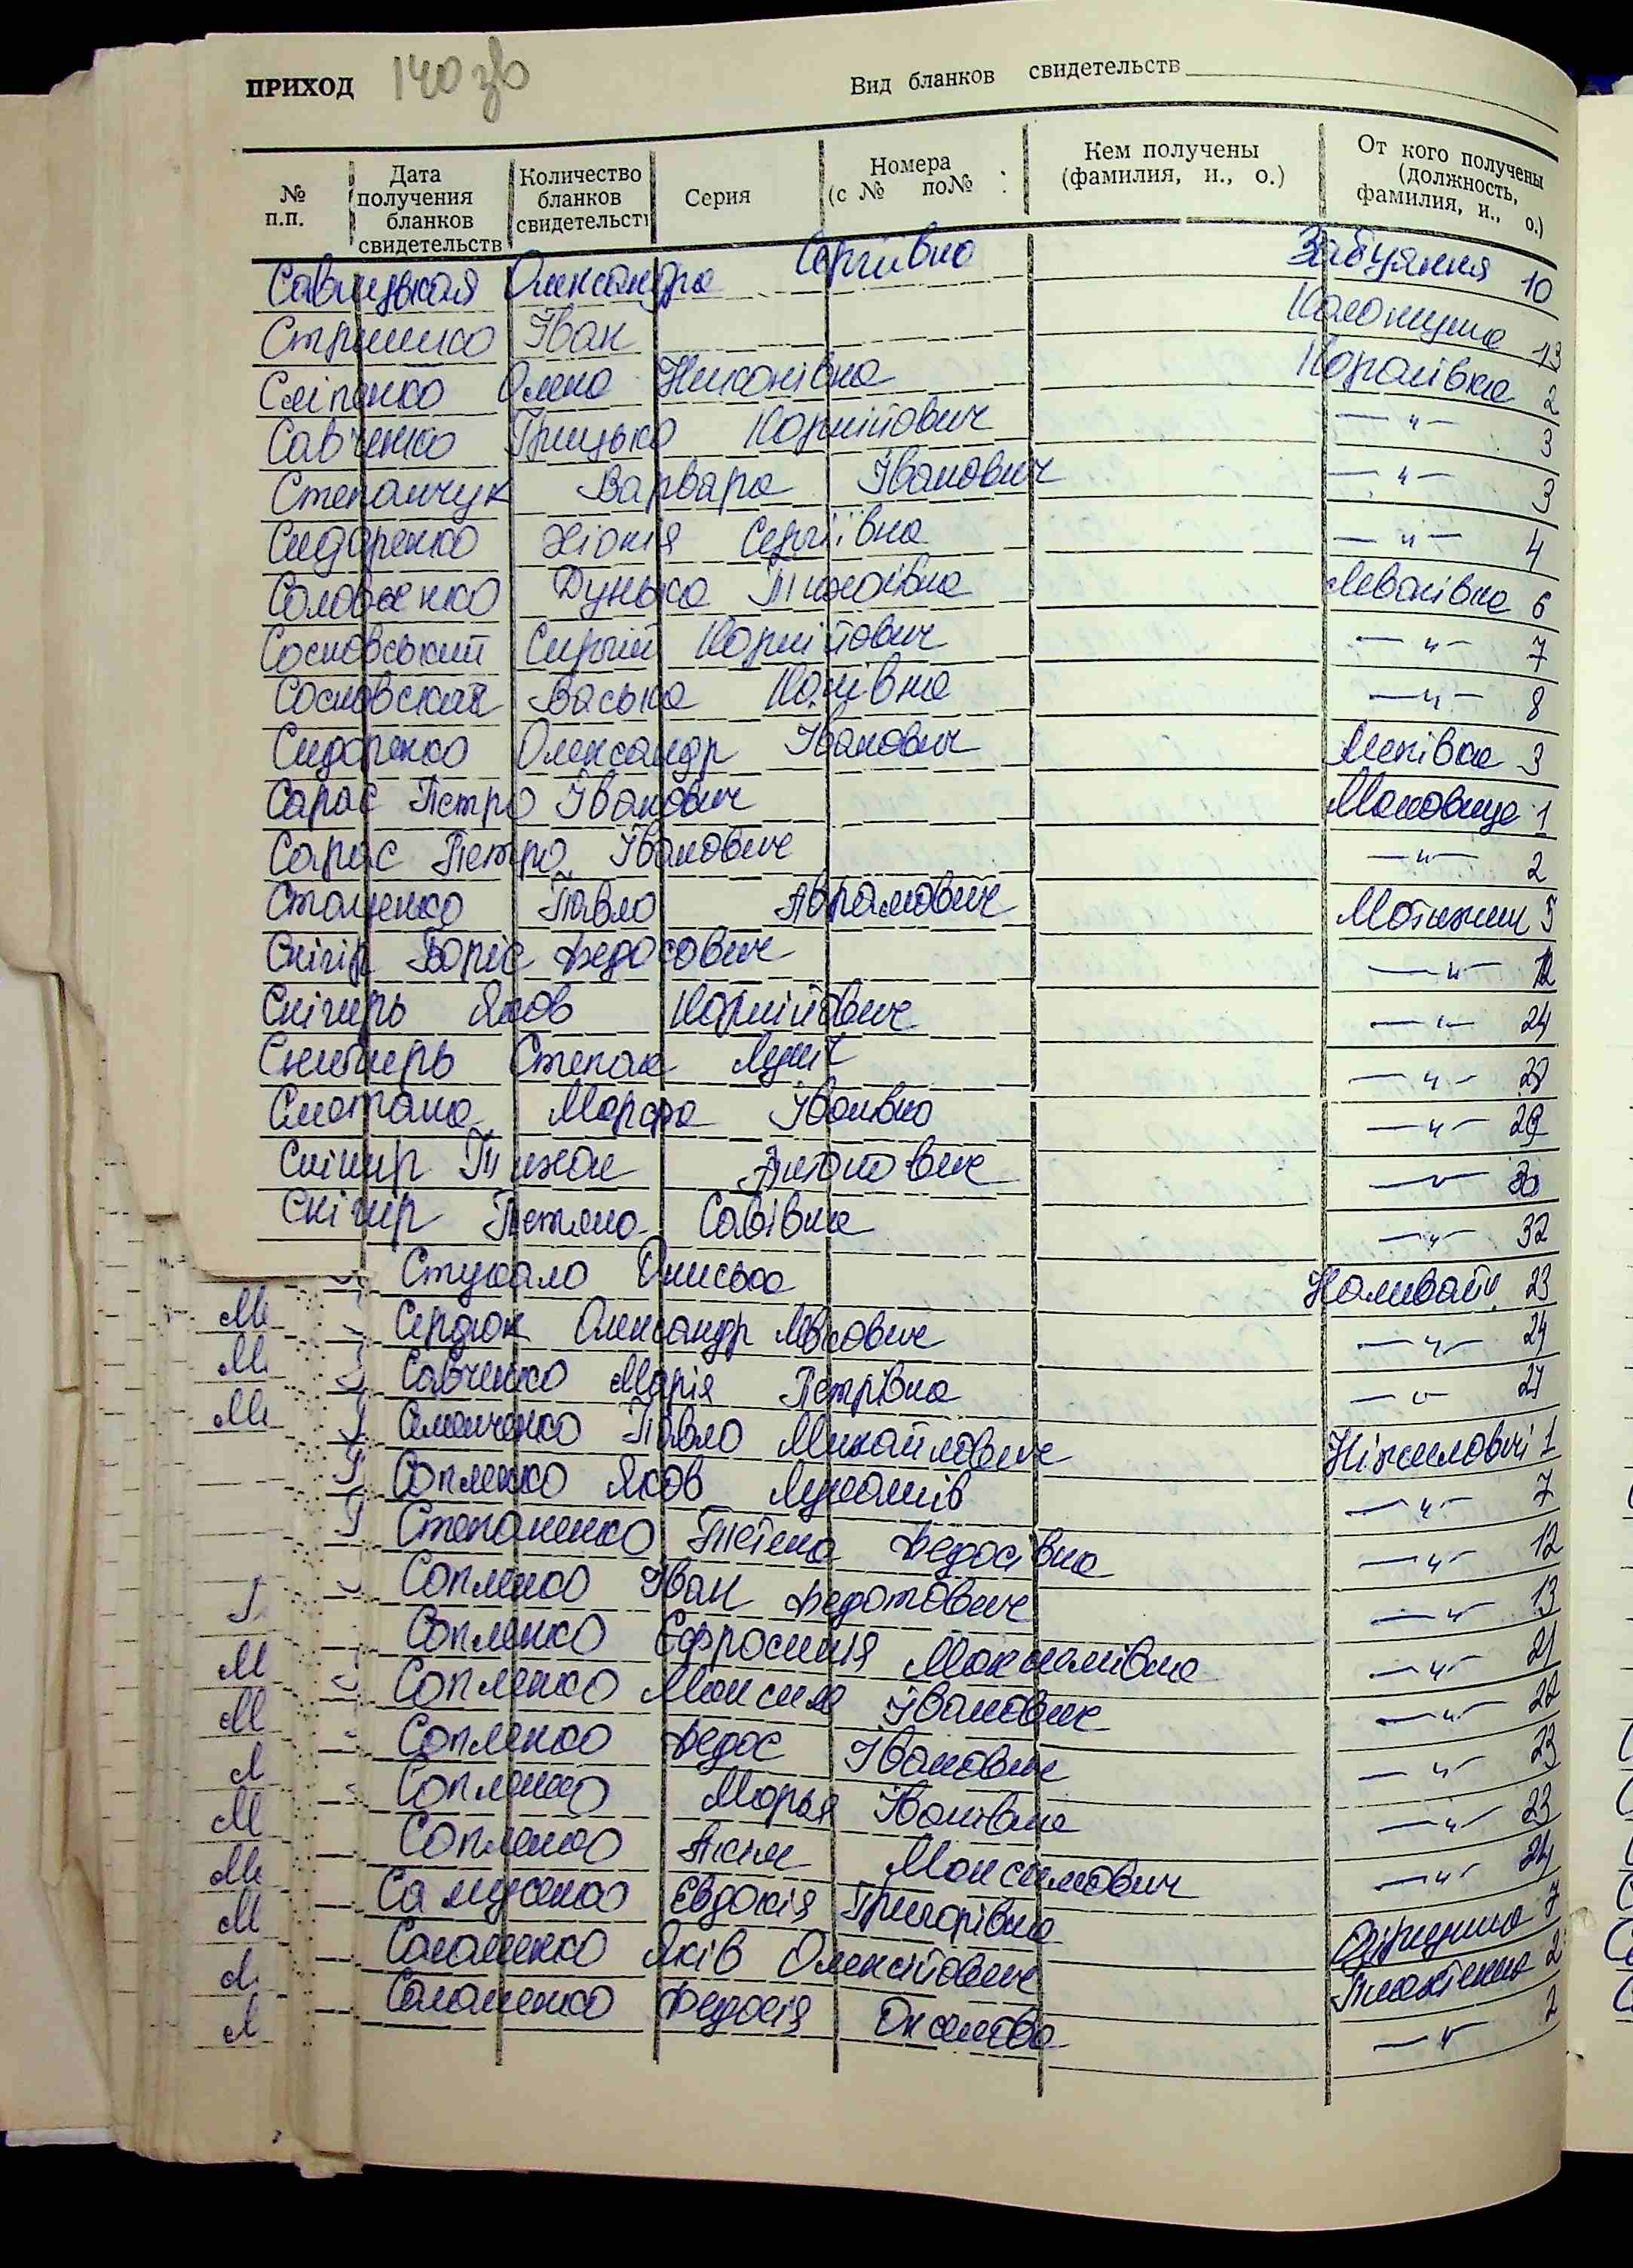 ПРИХОД 140 зв
Вид бланков свидетельств
№ п.п.
Дата получения бланков свидетельств
Количество бланков свидетельств
Серия
Номера (с № по№
Кем получены (фамилия, и., о.)
От кого получены (должность, фамилия, и., о.)
Савицькая Олександра Сергіївна Забуяння 10
Стришко Іван Колонщина 13
Сліпенко Олена Никонівна Королівка 2
Савченко Грицько Корнійович —"— 3
Степанчук Варвара Іванович —"— 3
Сидоренко Хіонія Сергіївна —"— 4
Соловьенко Дунька Тихоівна Леонівка 6
Сосновський Сергій Корнійович —"— 7
Сосновския Васька —"— 8
Сидоренко Олександр Іванович Менівка 3
Сарас Петро Іванович Маковище 1
Сарас Петро Іванович —"— 2
Стаценко Павло Аврамович Мотижин 5
Снігір Воріс Федосович —"— 12
Снігирь Яков Корнійович —"— 24
Снигирь Степан Лукич —"— 27
Сметана Марфа Іванівна —"— 29
Снігир Тихон Антонович —"— 30
Снігир Тетяна Савівна —"— 32
Стукало Ониська Наливайк. 23
М Сердюк Олександр Мусович —"— 24
М Савченко Марія Петрівна —"— 27
М Семенченко Павло Михайлович Ніжиловичі 1
Сопленко Яков Лукашів —"— 7
Степаненко Тетена Федосівна —"— 12
Сопленко Іван Федотович —"— 13
М Сопленко Єфросинія Максимівна —"— 21
М Сопленко Максим Іванович —"— 22
Сопленко Федос Іванович —"— 23
М Сопленко Марья Іванівна —"— 23
М Сопленко Аким Максимович —"— 24
М Самусенко Євдокія Григорівна 7
Саламенко Яків Олексійович 2
Саламенко Федосія —"— 2